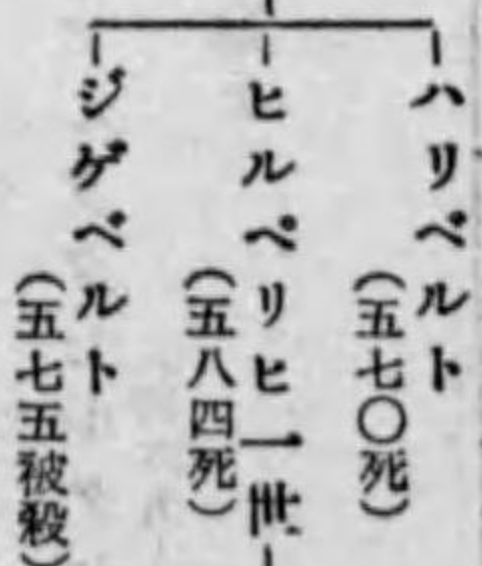 ハリベルト
(五七〇死)
ヒルペリヒ一世
(五八四死)
ジゲベルト
(五七五被殺)